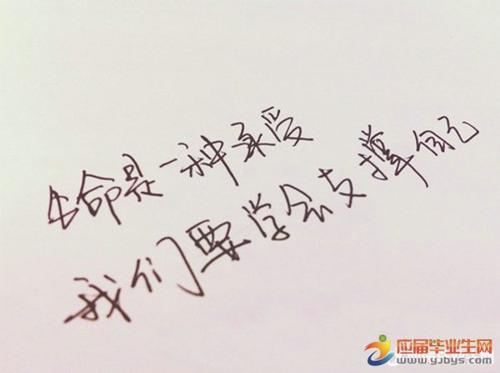 生命是一种承受
我们要学会支撑自己
应届毕业生网
www.yjbys.com